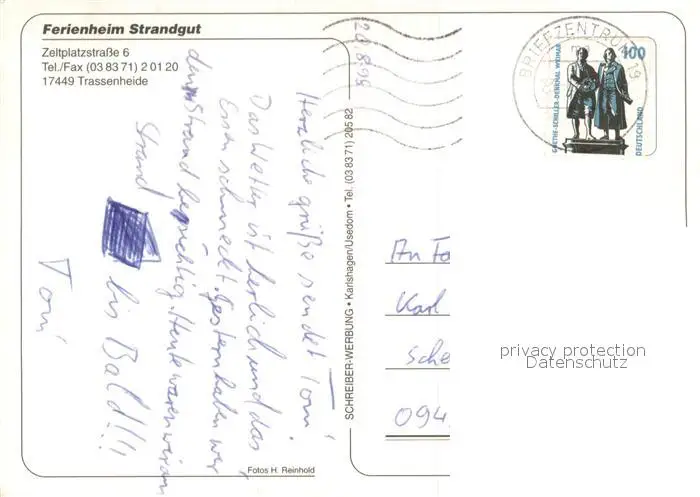 Ferienheim Strandgut
Zeltplatzstraße 6
Tel./Fax (03 83 71) 2 01 20
17449 Trassenheide
20.8.99
Herzliche grüße sendet Toni
Das Wetter ist herlich und das
Essen schmeckt. Gestern haben wir
den Strand besichtig. Heute waren wir am
Strand
bis Bald!!!
Toni
Fotos H. Reinhold
SCHREIBER-WERBUNG • Karlshagen/Usedom • Tel. (03 83 71) 205 82
BRIEFZENTRUM 19
GOETHE-SCHILLER-DENKMAL WEIMAR
100
DEUTSCHLAND
An Fa
Karl
Sche
094
privacy protection
Datenschutz